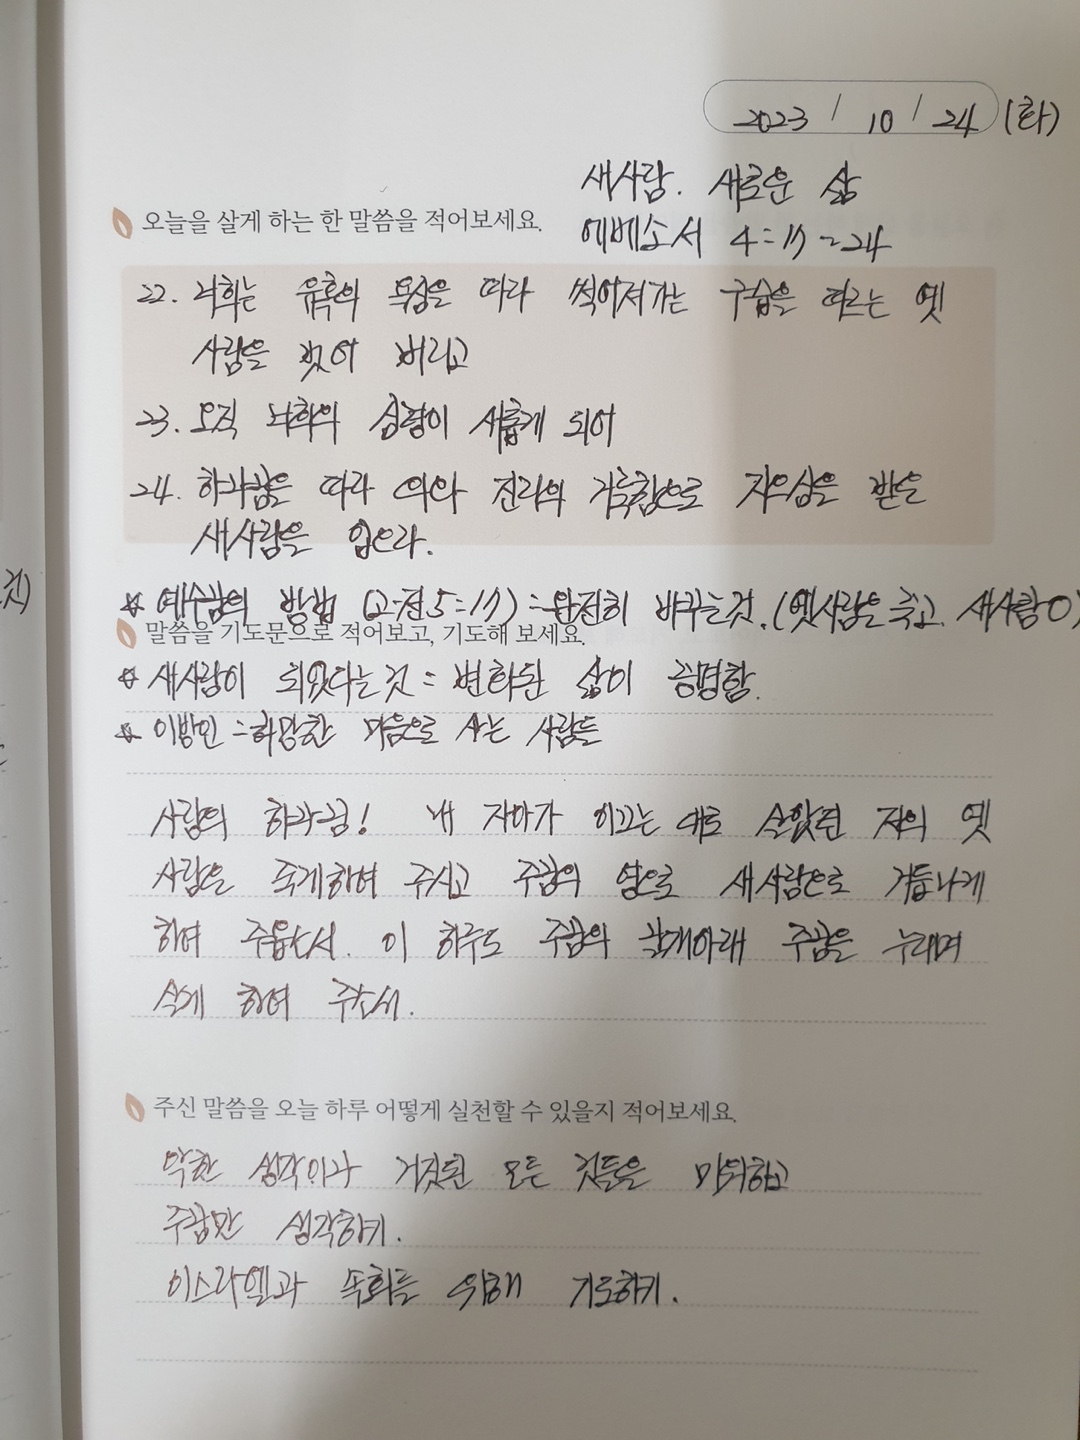 2023 / 10 / 24 (화)
새사람. 새로운 삶
오늘을 살게 하는 한 말씀을 적어보세요.
에베소서 4:17-24
22. 너희는 유혹의 욕심을 따라 썩어져가는 구습을 따르는 옛
사람을 벗어 버리고
23. 오직 너희의 심령이 새롭게 되어
24. 하나님을 따라 의와 진리의 거룩함으로 지으심을 받은
새사람을 입으라.
☆ 예수님의 방법 (고전5:17) = 완전히 바꾸는것. (옛사람은 죽고. 새사람0)
말씀을 기도문으로 적어보고, 기도해 보세요.
☆ 새사람이 되었다는것 = 변화된 삶이 증명함.
☆ 이방인 = 허망한 마음으로 사는 사람들
사랑의 하나님! 내 자아가 이끄는 대로 살았던 저의 옛
사람은 죽게하여 주시고 주님의 영으로 새사람으로 거듭나게
하여 주옵소서. 이 하루도 주님의 날개아래 주님을 누리며
살게 하여 주소서.
주신 말씀을 오늘 하루 어떻게 실천할 수 있을지 적어보세요.
악한 생각이나 거짓된 모든 것들을 마위하고
주님만 생각하기.
이스라엘과 속회를 위해 기도하기.